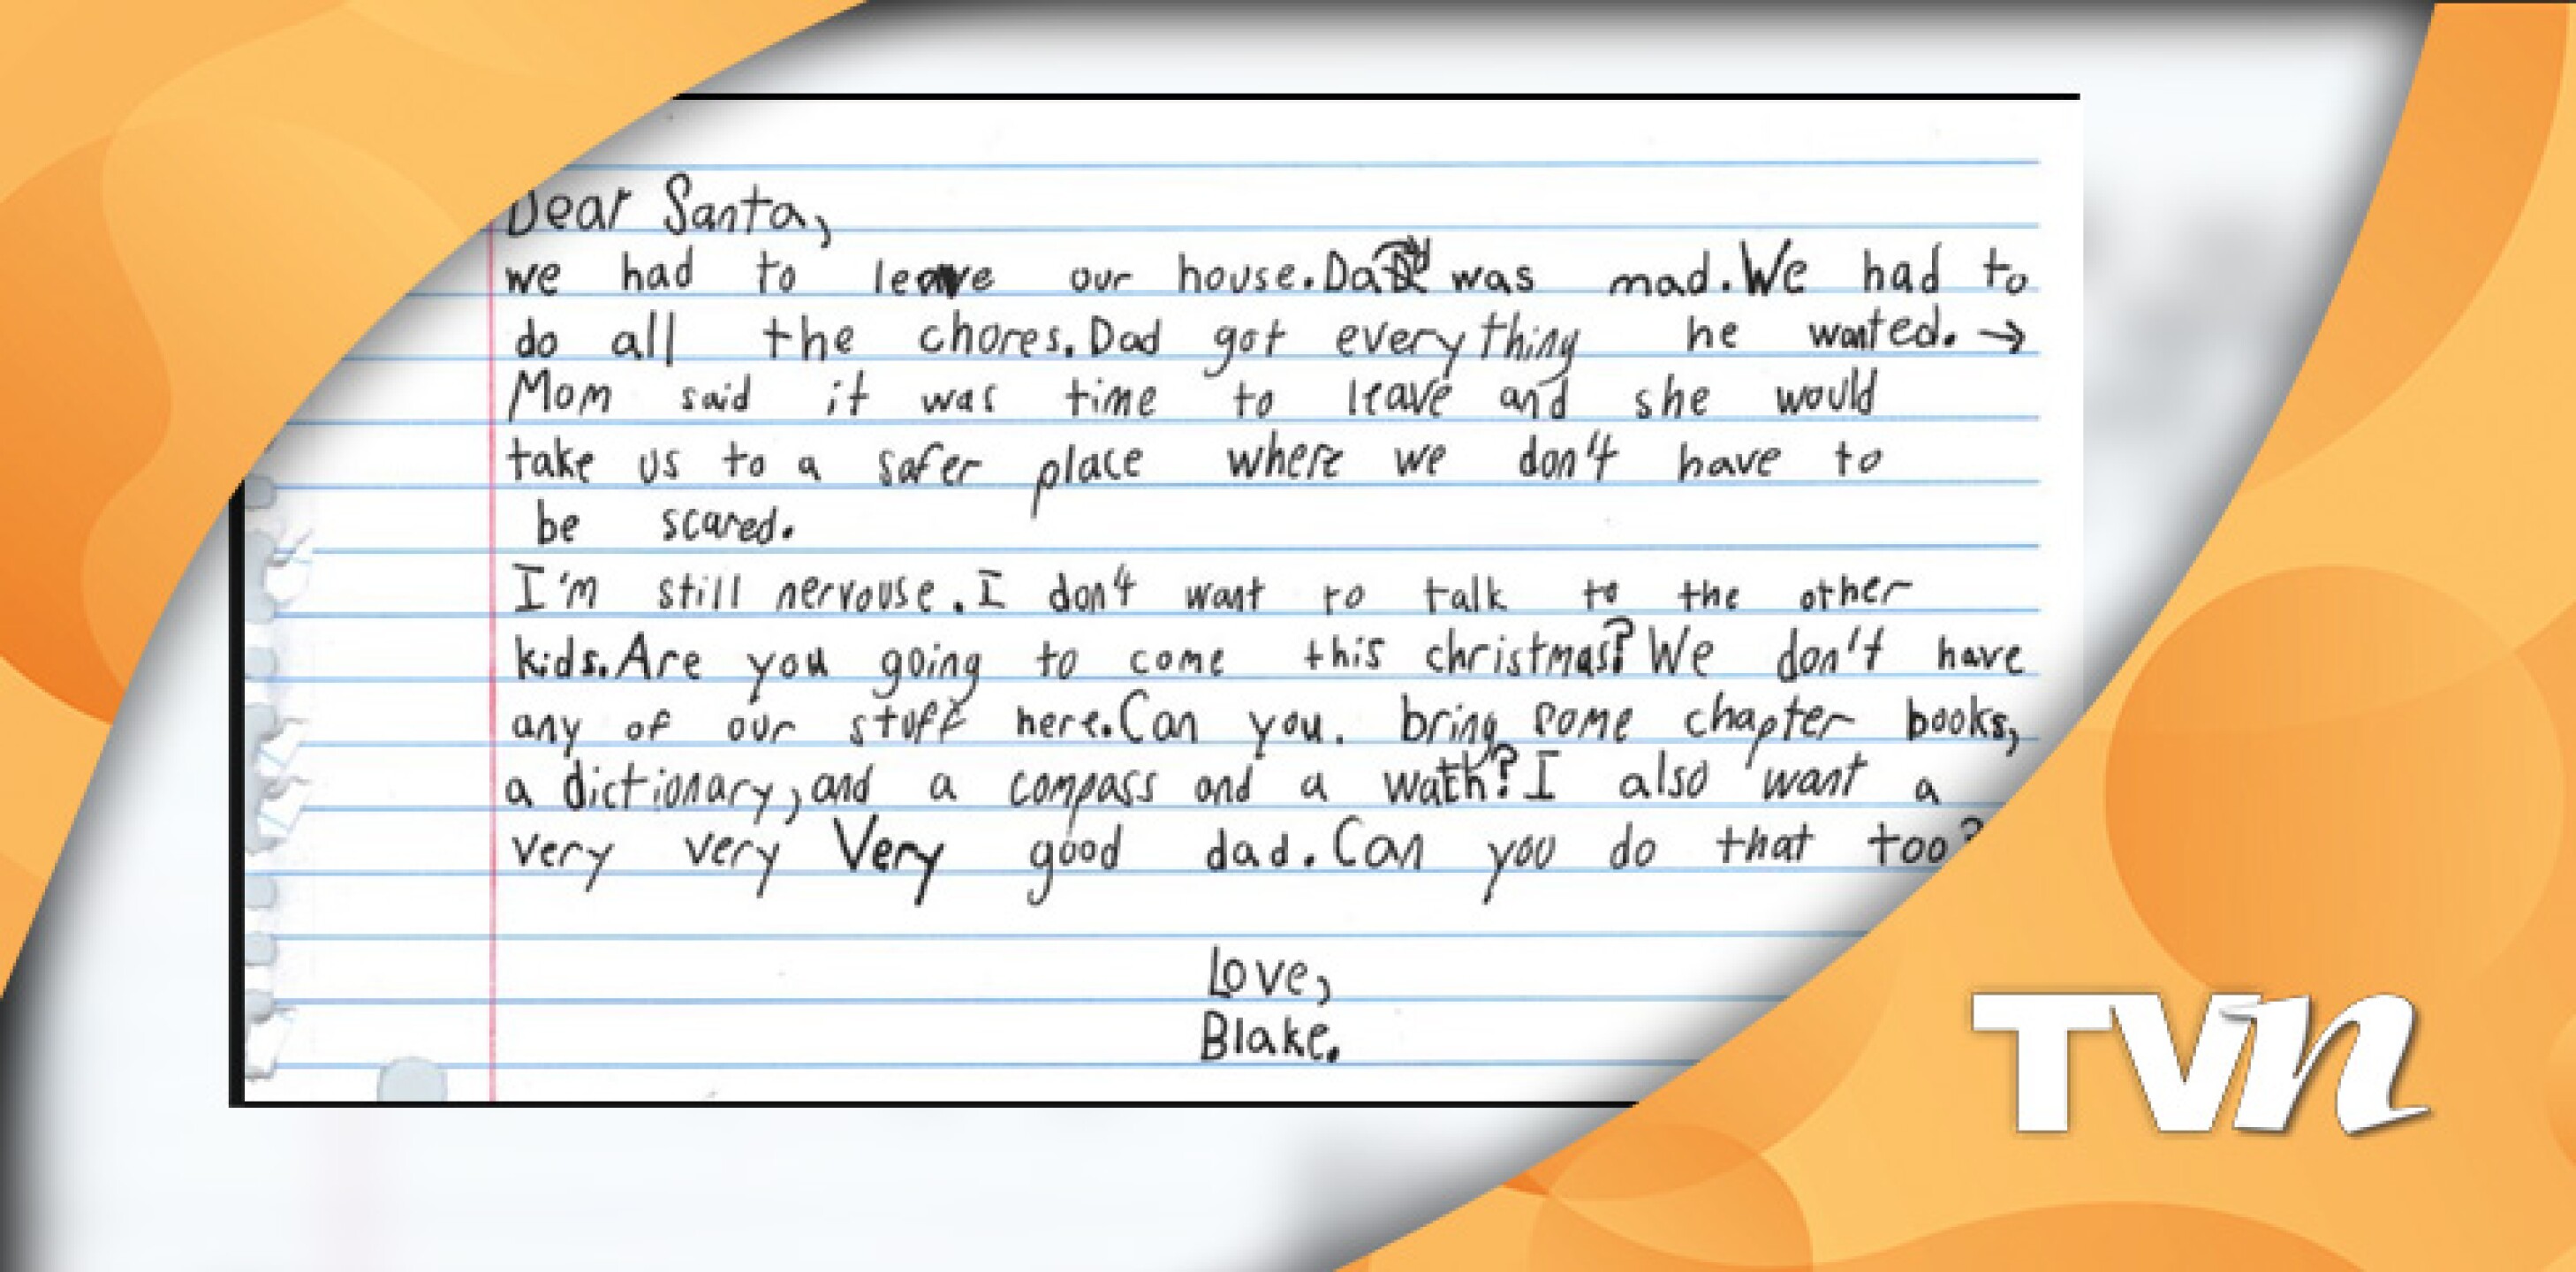 Dear Santa,
we had to leave our house.Dad was mad.We had to
do all the chores.Dad got everything he wanted.→
Mom said it was time to leave and she would
take us to a safer place where we don't have to
be scared.
I'm still nervouse.I don't want to talk to the other
kids.Are you going to come this christmas?We don't have
any of our stuff here.Can you. bring some chapter books,
a dictionary,and a compass and a wath?I also want a
very very Very good dad.Can you do that too?
Love,
Blake.
TVn